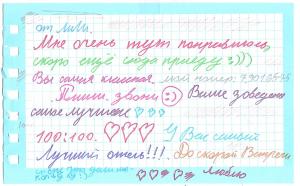 от Лили.
Мне очень тут понравилось,
скоро ещё сюда приеду :)))
Вы самия мой номер:
Пиши, звони :) Ваше заведение
самые лучшие ♡♡♡
100:100. ♡♡♡ У Вас самый
Лучший отель!!!. До скорой Встречи
♡♡♡♡ Люблю